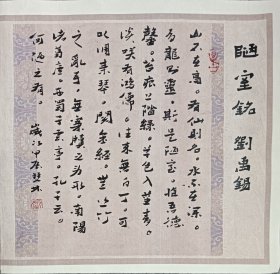 陋室銘 劉禹錫
山不在高。有仙則名。水不在深。
有龍則靈。斯是陋室。惟吾德
馨。苔痕上階綠。草色入簾青。
談笑有鴻儒。往來無白丁。可
以調素琴。閱金經。無絲竹
之亂耳。無案牘之勞形。南陽
諸葛廬。西蜀子雲亭。孔子云。
何陋之有。 歲次甲辰